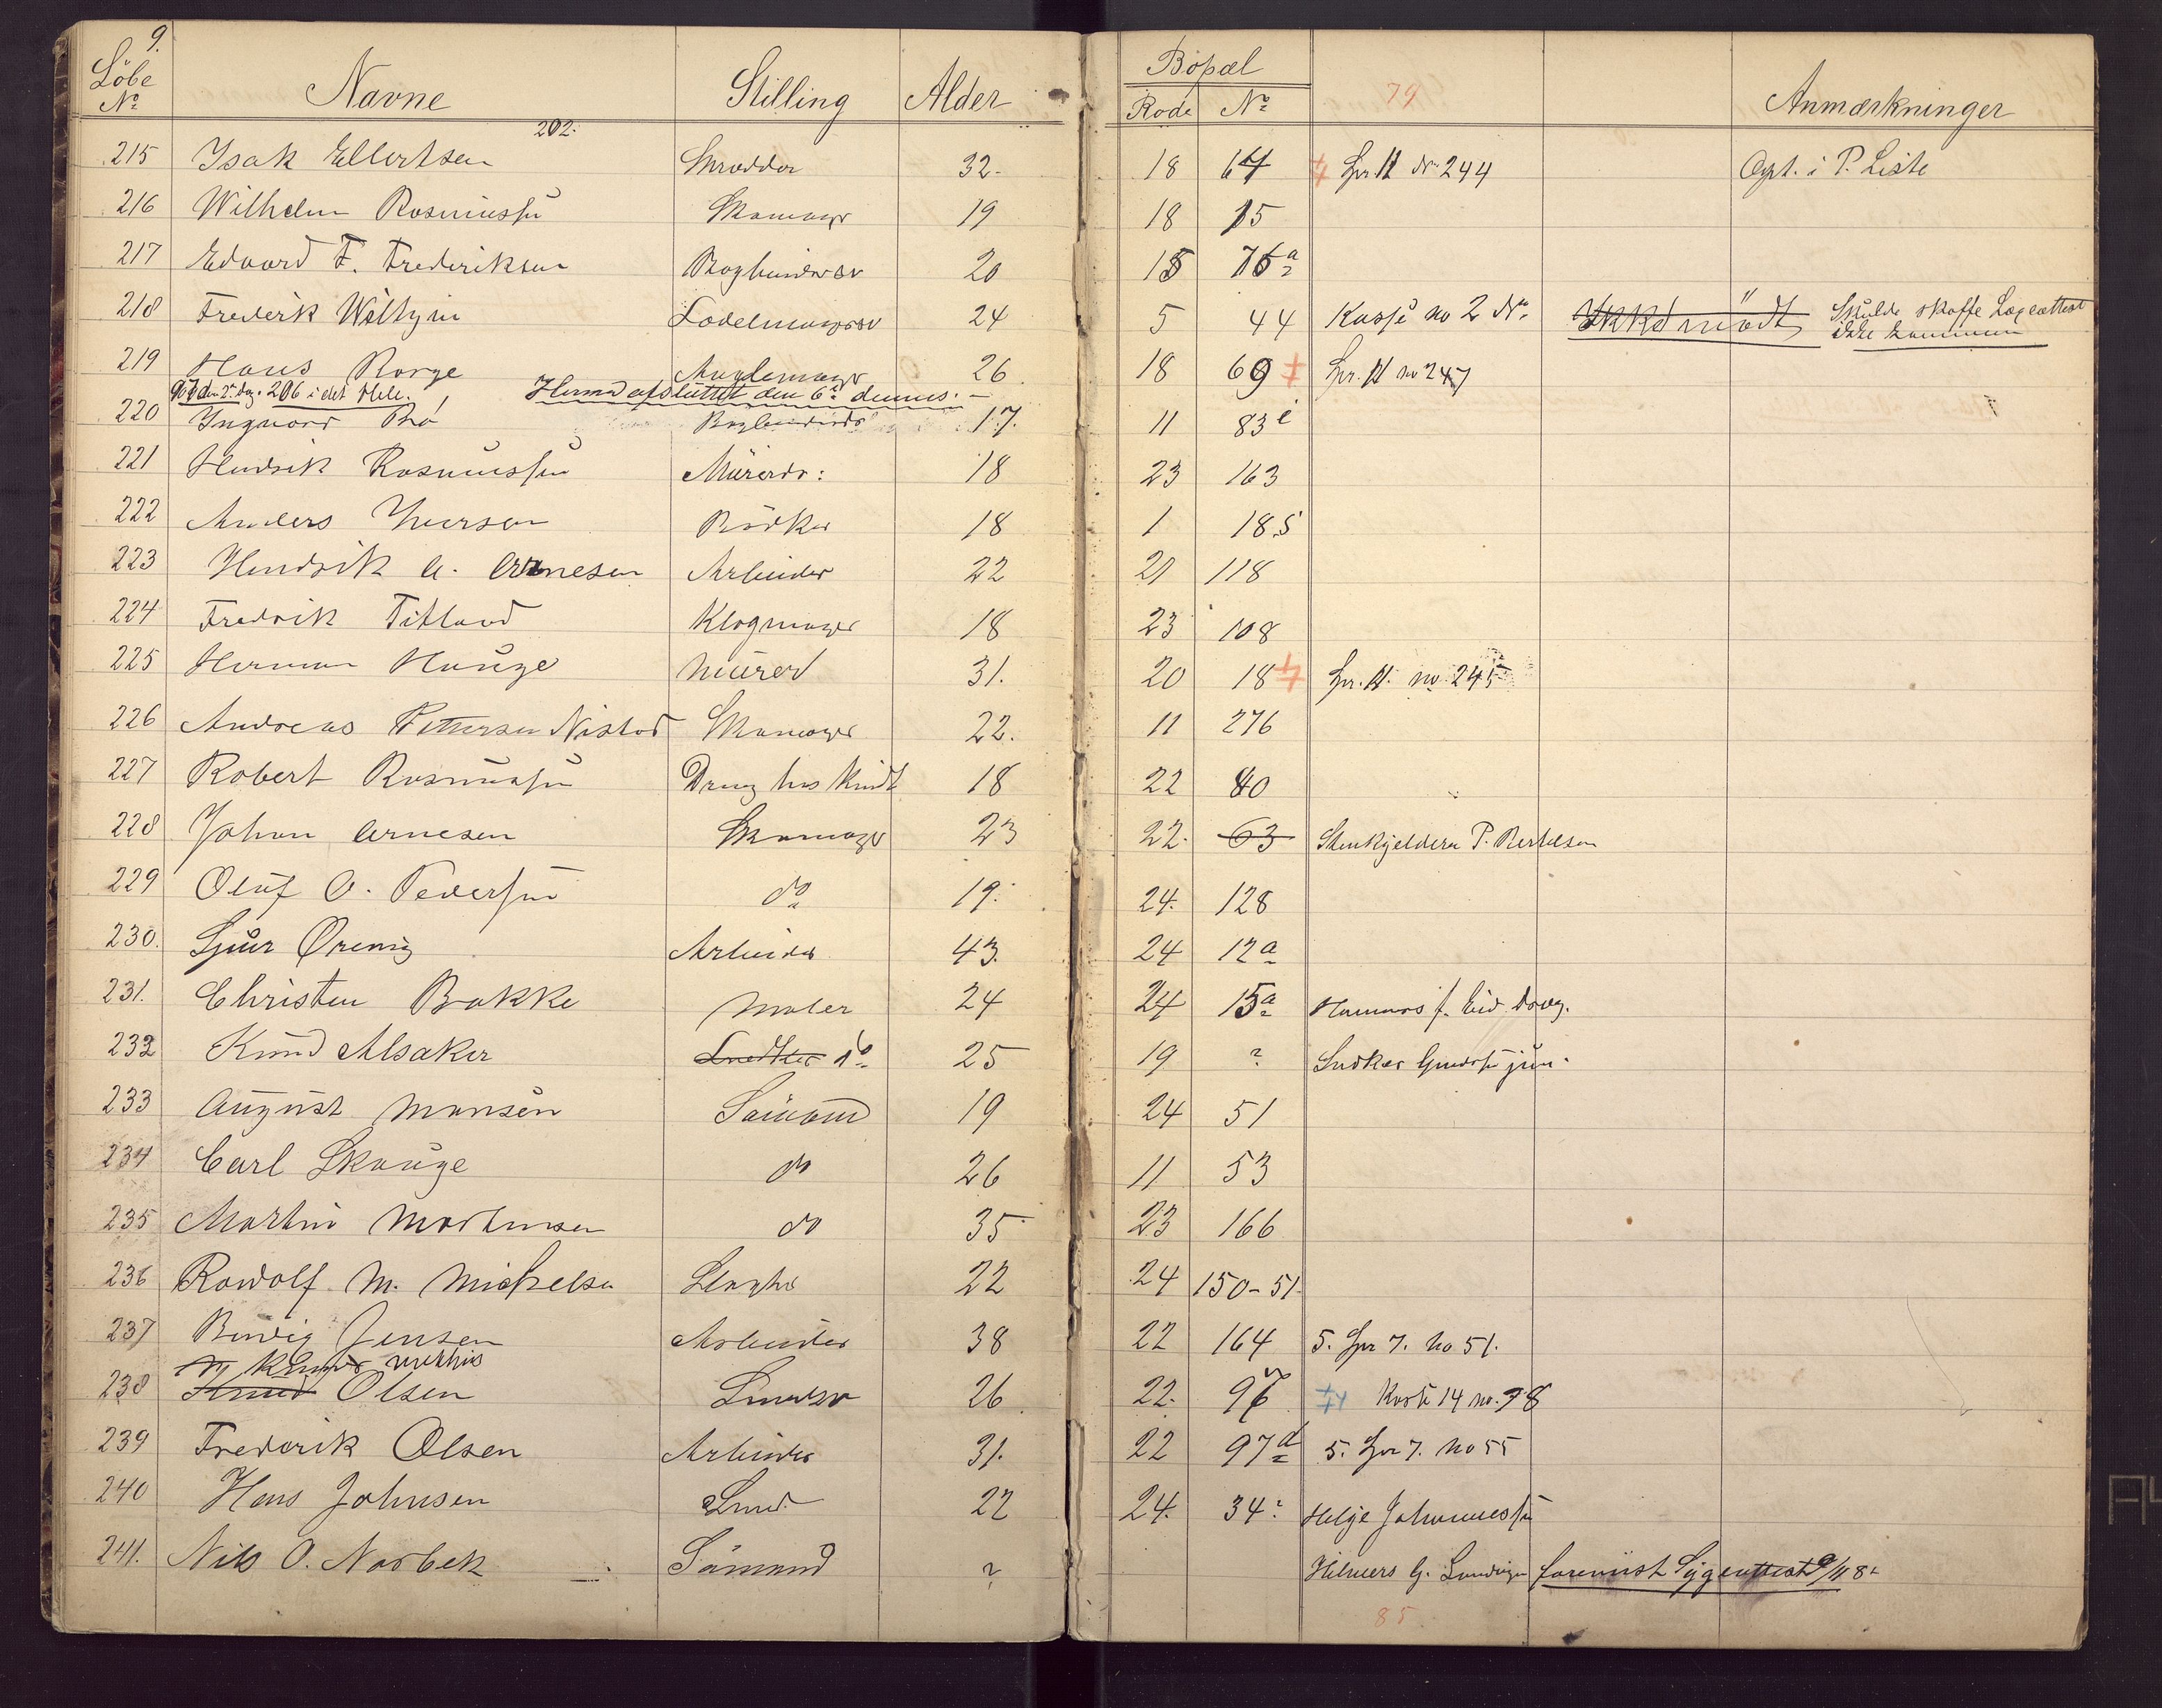 9.
Løbe No Navne Stilling Alder Bopæl Rode No 79 Anmærkninger
202.
215 Isak Ellertsen Skrædder 32. 18 64 Spr. 11 No 244 Opt. i P. Liste
216 Wilhelm Rasmussen Skomager 19 18 15
217 Edvard F. Frederiksen Bogbinder 20 15 76a
218 Frederik Wilhjin Sadelmager 24 5 44 Kasse no 2 Ikke mødt Skulde skaffe Lægeattest ikke kommen
219 Hans Rorge 26 18 69 Spr. 11 no 247
97 den 2den Dag. 206 i det Hele. Hermed afsluttet den 6te dennes.
220 Ingvard Bø Bogbinder 17. 11 83e
221 Hendrik Rasmussen Murerdr: 18 23 163
222 Anders Iversen Bødker 18 1 185
223 Hendrik A. Arnesen Arbeider 22 21 118
224 Fredrik Titland Klogmager 18 23 108
225 Herman Hauge Murer 31. 20 18 Spr. 11. no 245
226 Andreas Pettersen Nistad Skomager 22. 11 276
227 Robert Rasmussen Dreng hos Kindt 18 22 40
228 Johan Arnesen Skomager 23 22. 63 Stenkjelderen P. Bertelsen
229 Oluf O. Pedersen do 19. 24. 128
230. Sjur Øreng Arbeider 43. 24 12a
231. Christen Bakke Maler 24 24 15a
232 Knud Alsaker Snedker do 25 19 ? Snedker jun.
233 August Monsen Sømand 19 24 51
234 Carl Skauge do 26 11 53
235 Martin Mortensen do 35 23 166
236 Rowolf M. Michelsen Slagter 22 24 150-51
237 Bendig Jensen Arbeider 38 22 164 5. Spr 7. No 51.
238 Knud Olsen 26 22. 97 Kaste 14 no. 98
239 Frederik Olsen Arbeider 31. 22 97d 5. Spr 7. No 55
240 Hans Johnsen Smed 22 24. 34: Helje Johannessen
241. Nils O. Norbek Sømand ? forevist Sygeattest 9/11 82
85